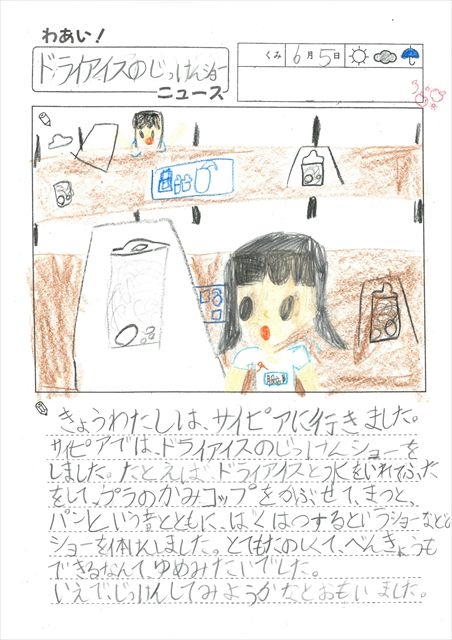 わあい!
ドライアイスのじっけんショー
ニュース
くみ 6月5日
きょうわたしは、サイピアに行きました。
サイピアでは、ドライアイスのじっけんショーを
しました。たとえば、ドライアイスと水をいれてふた
をして、プラのかみコップをかぶせて、まつと、
パンという音とともに、ばくはつするというショーなどの
ショーを体けんしました。とてもたのしくて、べんきょうも
できるなんて、ゆめみたいでした。
いえで、じっけんしてみようかなとおもいました。